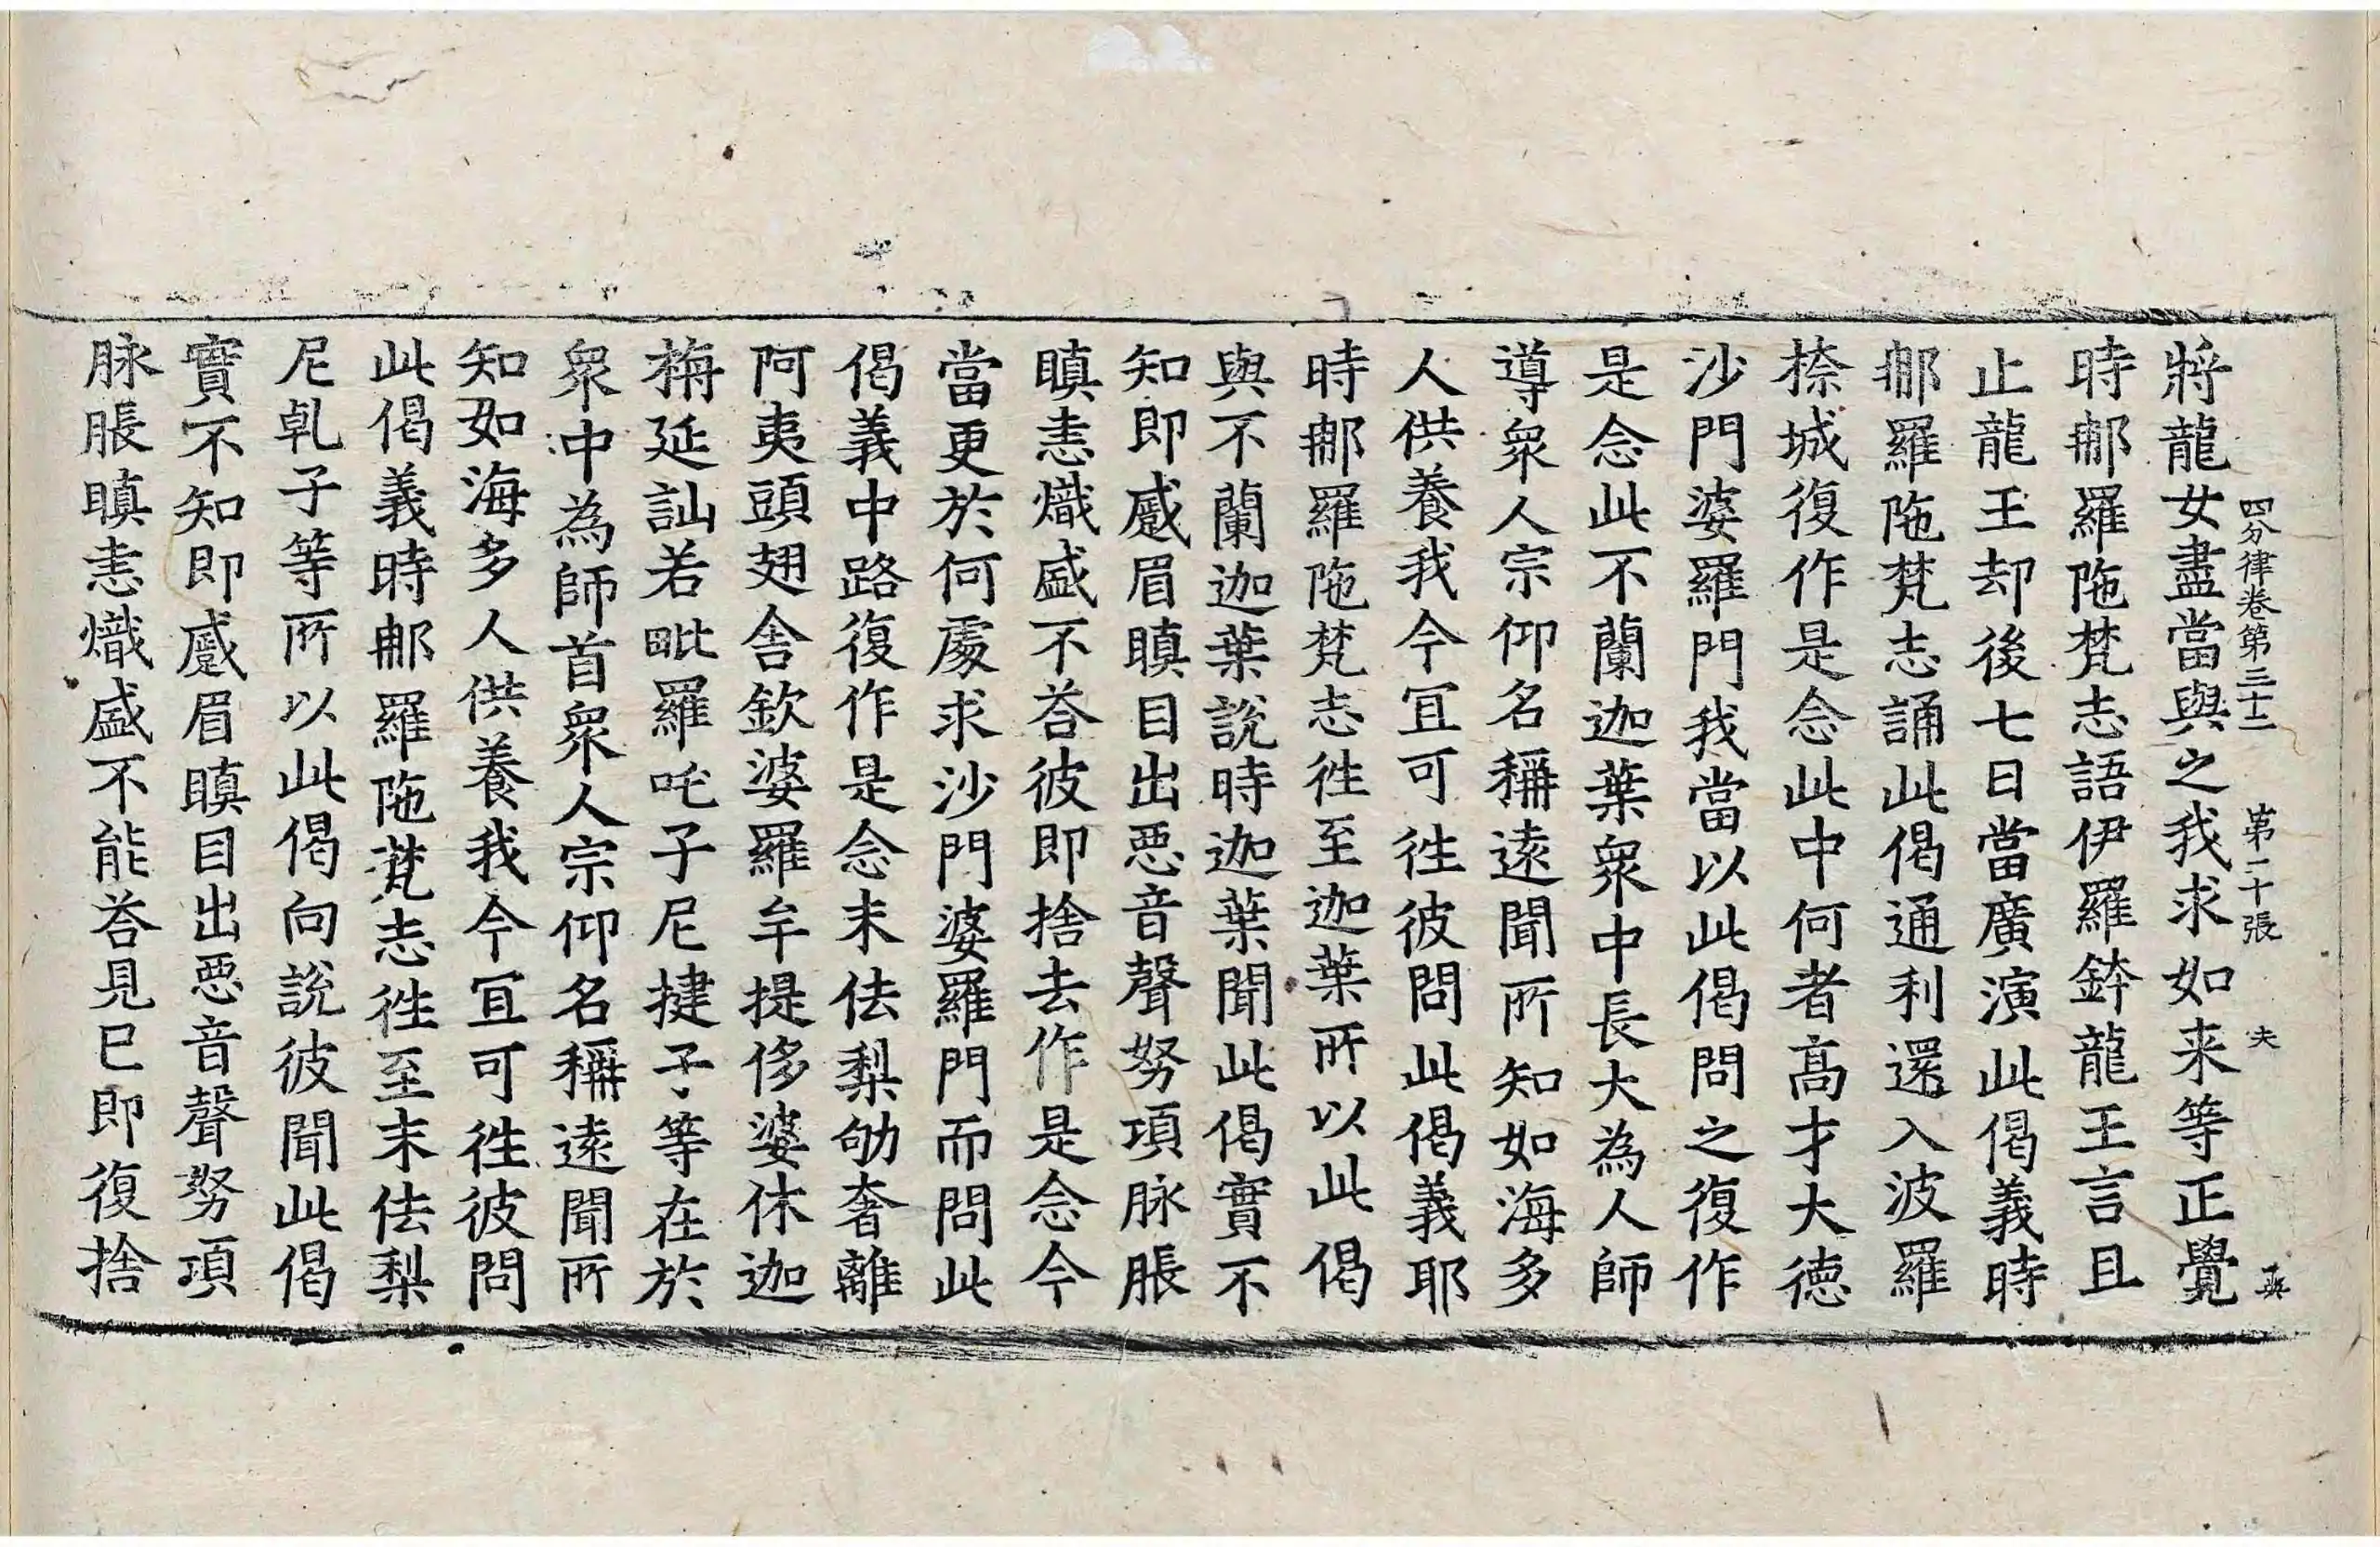 四分律卷第三十二　第二十張　夫
將龍女盡當與之我求如来等正覺
時郍羅陁梵志語伊羅鉢龍王言且
止龍王却後七日當廣演此偈義時
郍羅陁梵志誦此偈通利還入波羅
㮈城復作是念此中何者高才大徳
沙門婆羅門我當以此偈問之復作
是念此不蘭迦葉衆中長大為人師
導衆人宗仰名稱遠聞所知如海多
人供養我今冝可徃彼問此偈義耶
時郍羅陁梵志徃至迦葉所以此偈
與不蘭迦葉說時迦葉聞此偈實不
知即慼眉瞋目出惡音聲努項脉脹
瞋恚熾盛不荅彼即捨去作是念今
當更於何處求沙門婆羅門而問此
偈義中路復作是念末佉梨劬奢離
阿夷頭翅舍欽婆羅牟提侈婆休迦
栴延訕若毗羅吒子尼揵子等在於
衆中為師首衆人宗仰名稱遠聞所
知如海多人供養我今冝可徃彼問
此偈義時郍羅陁梵志徃至末佉梨
尼乹子等所以此偈向說彼聞此偈
實不知即慼眉瞋目出惡音聲努項
脉脹瞋恚熾盛不能荅見已即復捨